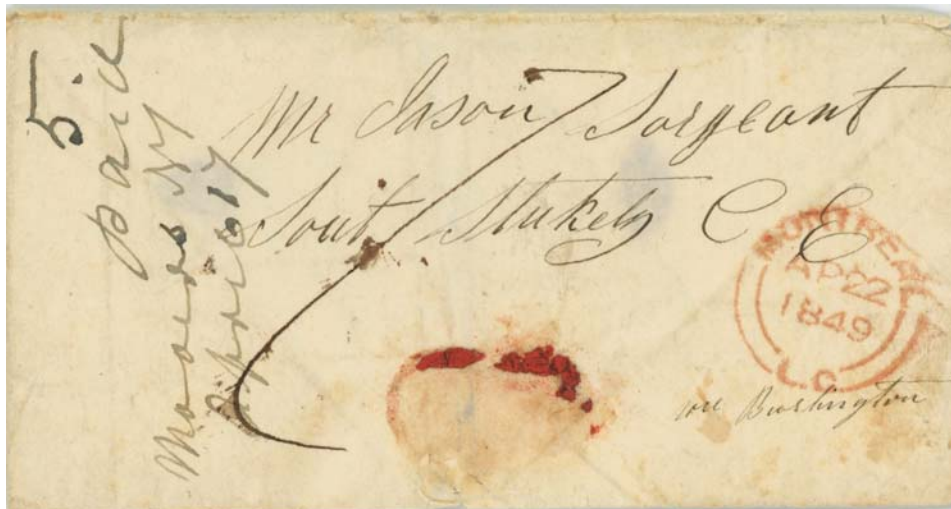 5
Paid
Mooers NY
April 17
Mr Jason Sargeant
South Stukely C E
MONTREAL
AP 22
1849
L.C.
Burlington